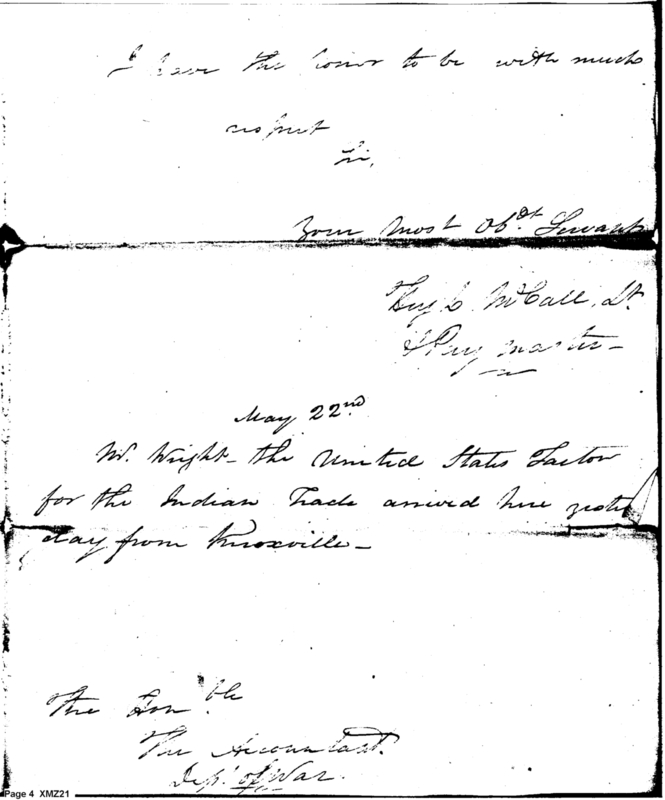 I have the honor to be with much
respect
Sir,
Your Most Obdt. Servant
Hugh McCall, Lt.
& Pay master
May 22nd
Mr. Wright - the United States Factor
for the Indian Trade arrived here yester
day from Knoxville -
The Honble
The Accountant.
Dept. of War.
Page 4 XMZ21